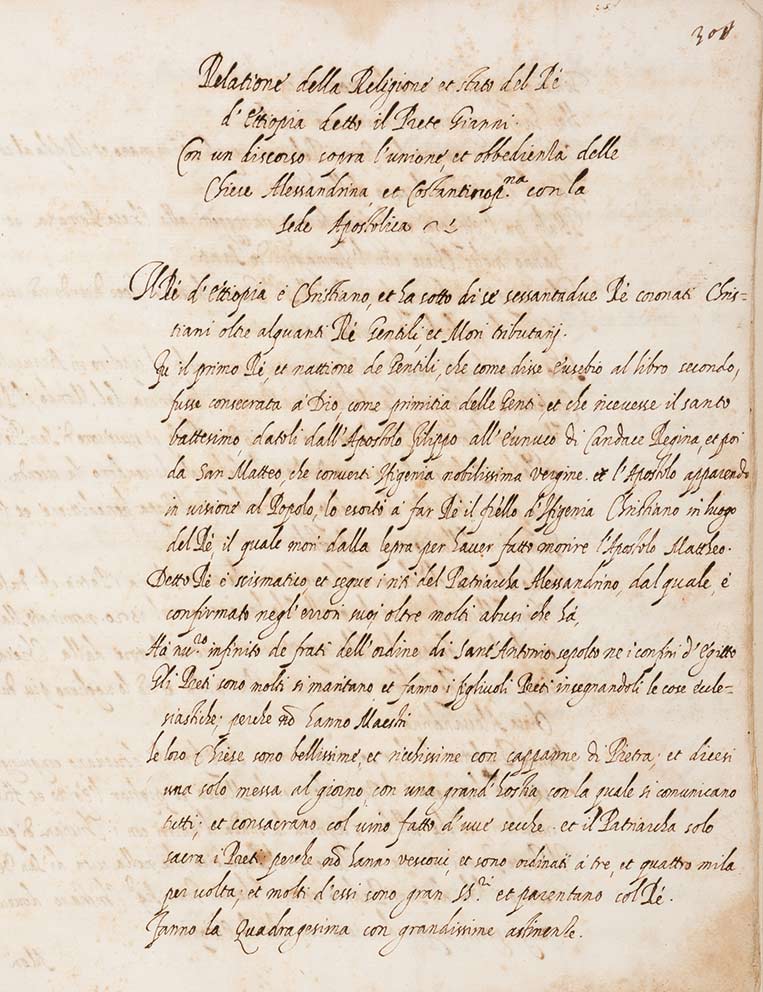 301
Relatione della Religione et stato del Ré
d'Ettiopia detto il Prete Gianni.
Con un discorso sopra l'unione, et obbedienza delle
Chiese Alessandrina, et Costantinop.na con la
sede Apostolica
Il Ré d'Ettiopia è Christiano, et ha sotto di se sessantadue Ré coronati Chris-
tiani oltre alquanti Ré Gentili, et Mori tributarj.
Fu il primo Ré, et nattione de Gentili, che come disse Eusebio al libro secondo,
fusse consecrata à Dio, come primitia delle Genti, et che ricevesse il santo
battesimo, datoli dall'Apostolo Filippo all'Eunuco di Candace Regina, et poi
da San Matteo, che converti Ifigenia nobilissima vergine. et l'Apostolo apparendo
in visione al Popolo, lo esortò à far Ré il f'ello d'Ifigenia Christiano in luogo
del Ré, il quale morì dalla lepra per haver fatto morire l'Apostolo Mattheo.
Detto Ré è scismatico et segue i riti del Patriarcha Alessandrino, dal quale, è
confirmato negl'errori suoj oltre molti abusi che hà,
Hà nu.ro infinito de frati dell'ordine di Sant'Antonio sepolto ne i confini d'Egitto
Gli Preti sono molti si maritano et fanno i figlivoli Preti insegnandoli le cose eccle-
siastiche; perche nō hanno Maestri
le loro Chiese sono bellissime, et ricchissime con cappanne di Pietra; et dicesi
una solo messa al giorno con una grand'hostia con la quale si comunicano
tutti; et consacrano col vino fatto d'uve secche. et il Patriarcha solo
sacra i Preti perche nō hanno vescovi, et sono ordinati à tre, et quattro mila
per volta; et molti d'essi sono gran SS.ri et parentano col Ré.
Fanno la Quadragesima con grandissime astinenze.